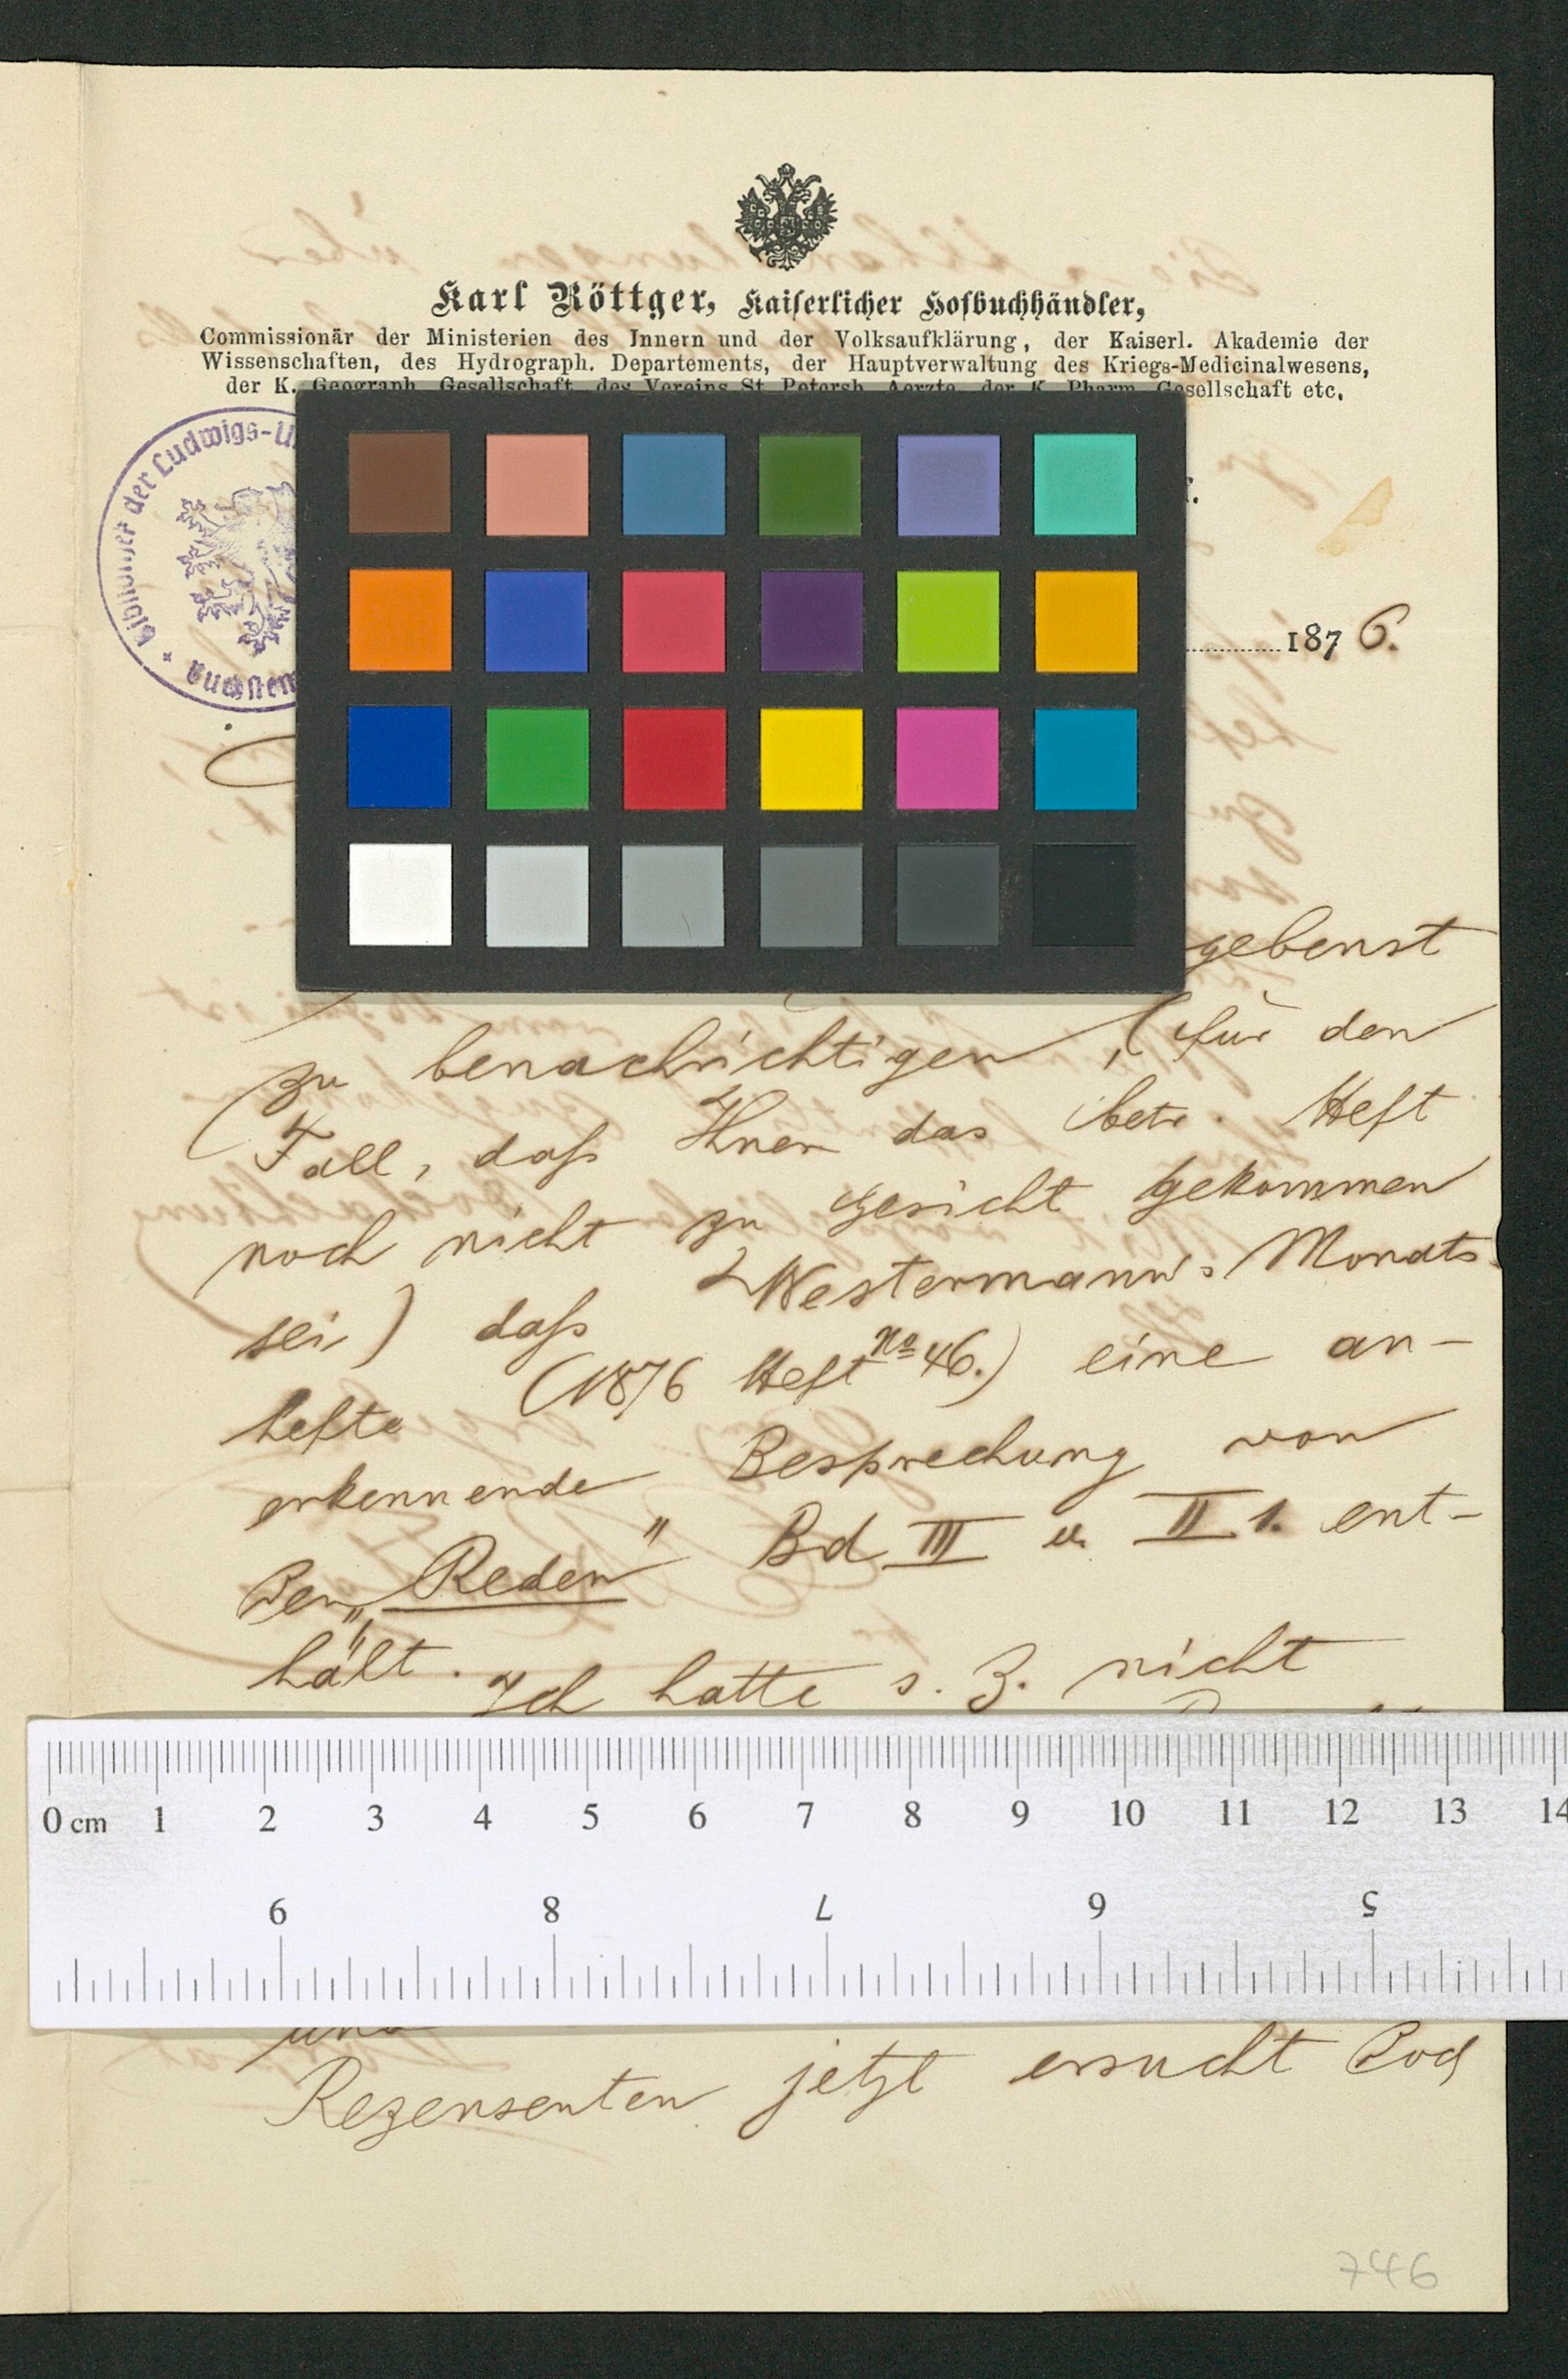 Karl Röttger, Kaiserlicher Hofbuchhändler,
Commissionär der Ministerien des Innern und der Volksaufklärung, der Kaiserl. Akademie der
Wissenschaften, des Hydrograph. Departements, der Hauptverwaltung des Kriegs-Medicinalwesens,
der K. Geograph. Gesellschaft, des Vereins St. Petersb. Aerzte, der K. Pharm. Gesellschaft etc.
Bibliothek der Ludwigs-U
1876.
gebenst
zu benachrichtigen, (für den
Fall, daß Ihnen das betr. Heft
noch nicht zu Gesicht gekommen
sei) daß Westermann's Monats-
hefte (1876 Heft No 46.) eine an-
erkennende Besprechung von
Den „Reden" Bd III u. II 1. ent-
hält. Ich hatte s. Z. nicht
0 cm 1 2 3 4 5 6 7 8 9 10 11 12 13 14
9 8 7 6 5
und
Rezensenten jetzt ersucht Doch
746